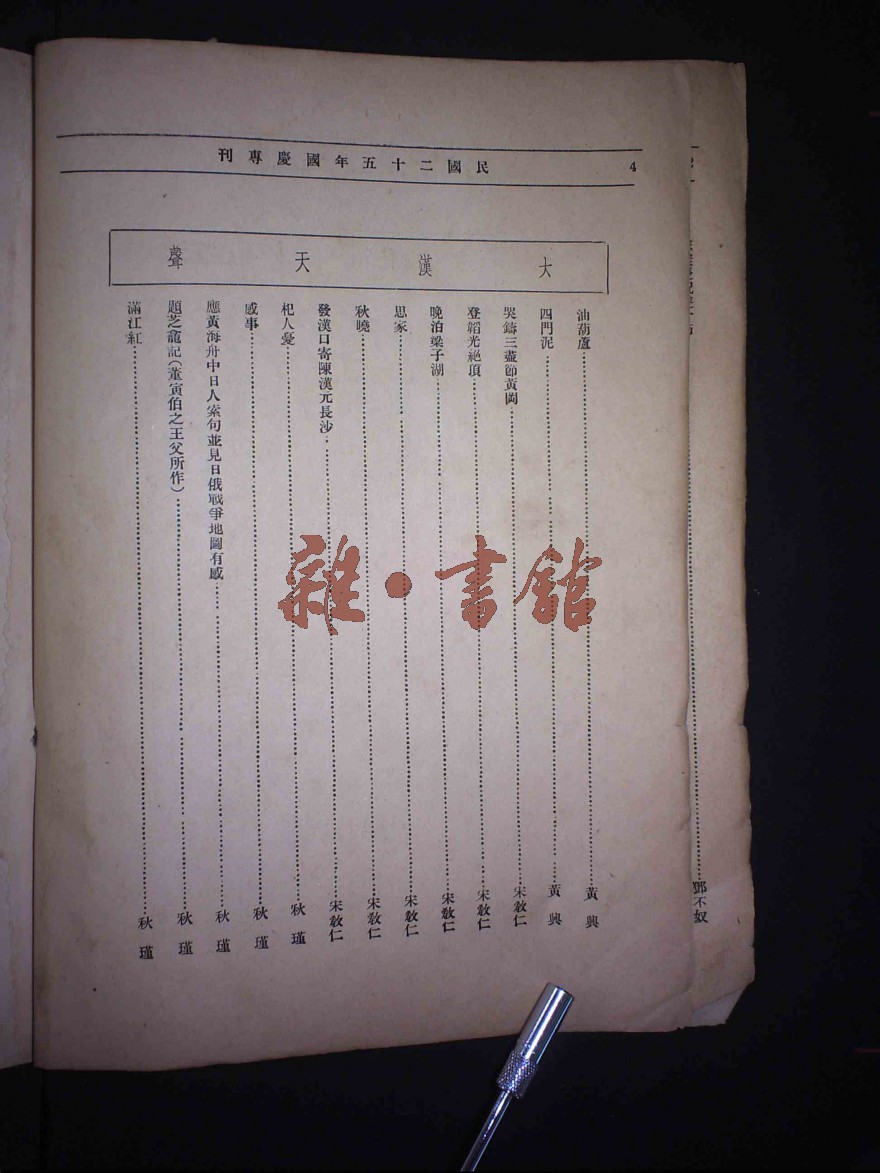 民國二十五年國慶專刊
4
大漢天聲
油葫蘆……黃興
四門泥……黃興
哭鑄三盡節黃岡……宋敎仁
登韜光絕頂……宋敎仁
晚泊梁子湖……宋敎仁
思家……宋敎仁
秋曉……宋敎仁
發漢口寄陳漢元長沙……宋敎仁
杞人憂……秋瑾
感事……秋瑾
應黃海舟中日人索句並見日俄戰爭地圖有感……秋瑾
題芝龕記（董寅伯之王父所作）……秋瑾
滿江紅……秋瑾
雜·書館
鄧不奴